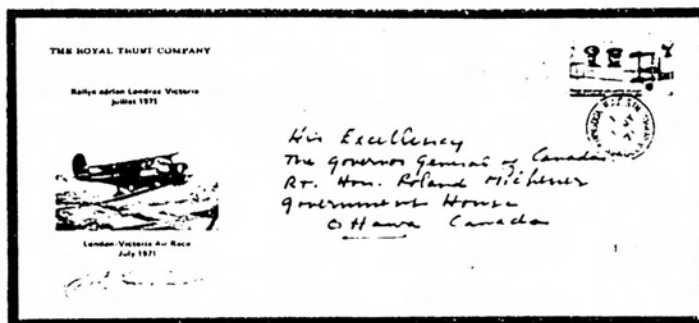 THE ROYAL TRUST COMPANY
Rallye aérien Londres Victoria
Juillet 1971
London-Victoria Air Race
July 1971
His Excellency
The Governor General of Canada
Rt. Hon. Roland Michener
Government House
Ottawa Canada